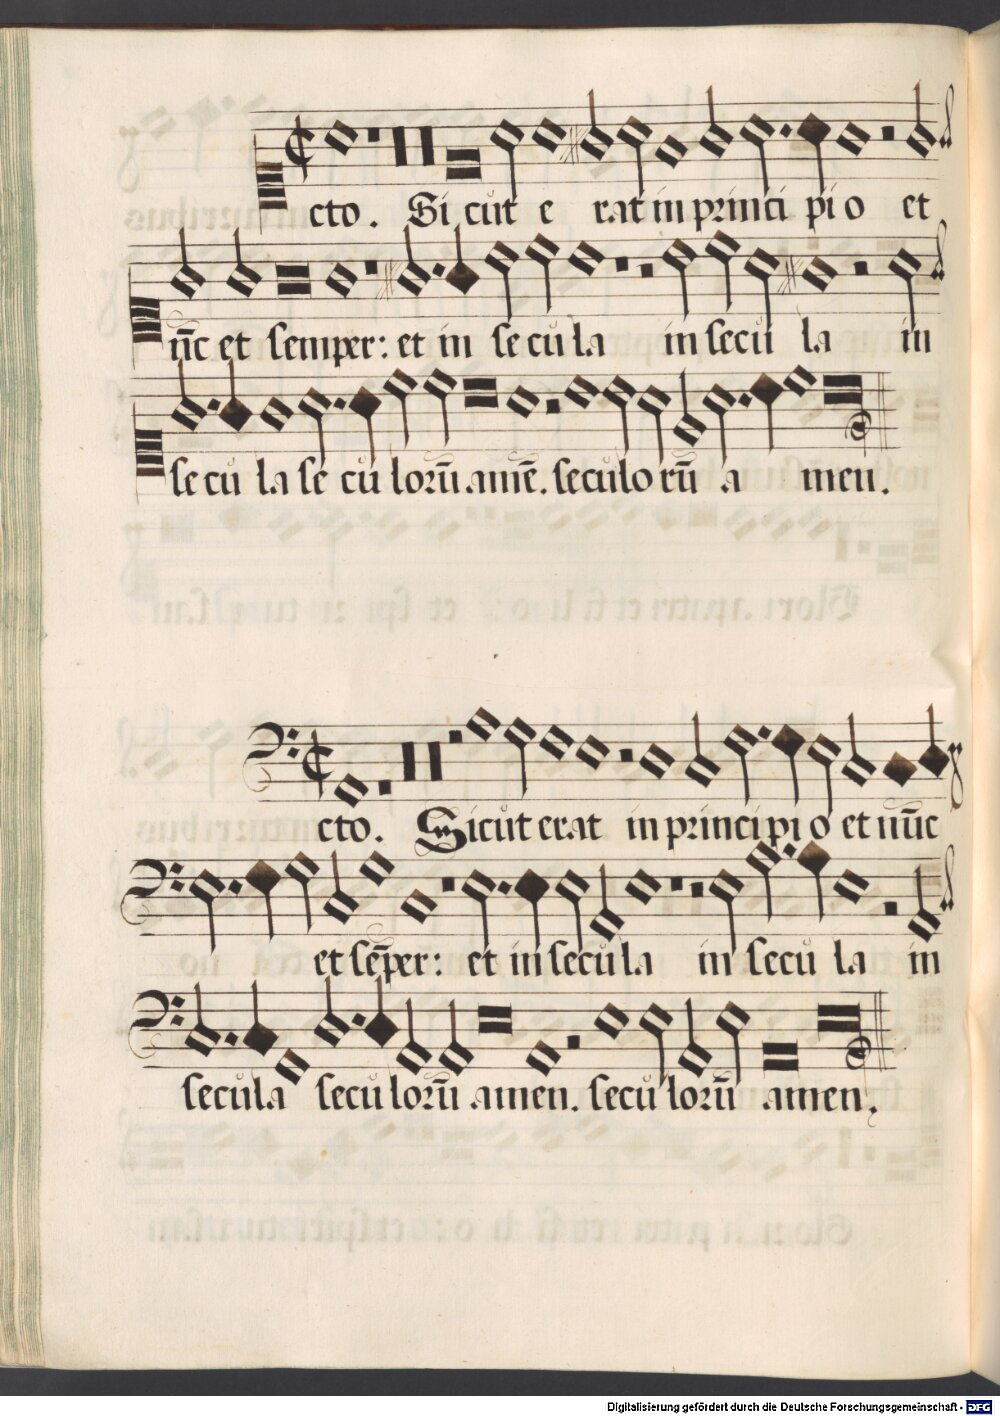 cto. Si cut e rat in princi pi o et
nūc et semper: et in se cu la in secu la in
se cu la se cu lorū amē. seculo rū a men.
cto. Sicut erat in principio et nūc
et sēper: et in secu la in secu la in
secula secu lorū amen. secu lorū amen.
Digitalisierung gefördert durch die Deutsche Forschungsgemeinschaft - DFG